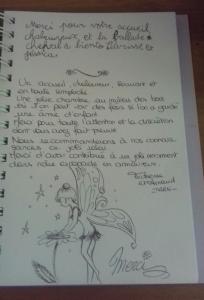 Merci pour votre accueil
chaleureux et la ballade à
cheval à bientôt Clarisse et
Jessica.
Un accueil, chaleureux, souriant et
en toute simplicité
Une jolie chambre au milieu des bois
où l'on peut voir des fées si l'on a gardé
une âme d'enfant
Merci pour toute l'attention et la discrétion
dont vous avez fait preuve
Nous recommanderons à nos connais-
sances ce joli
Merci d'avoir contribué à un joli moment
dans notre escapade en amoureux.
Merci